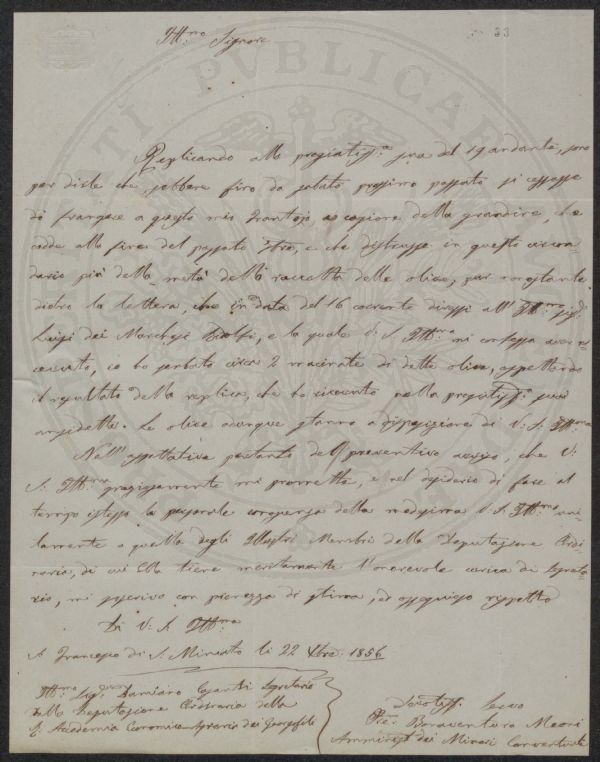 33
Ill.mo Signore
Replicando alla pregiatiss.a sua del 19 andante, sono
per dirle che, sebbene fino da sabato prossimo passato si cessasse
di frangere a questo mio frantojo a cagione della grandine, che
cadde alla fine del passato 7bre, e che distrusse in questo circon
dario più della metà della raccolta delle olive, pur nonostante
dietro la lettera, che in data del 16 corrente diressi all' Ill.mo Sig.
Luigi dei Marchesi Ridolfi, e la quale V. S. Ill.ma mi confessa aver ri
cevuto, io ho serbato circa 2 macinate di dette olive, aspettando
il resultato della replica, che ho ricevuto nella pregiatiss.a sua
anzidetta. Le olive dunque stanno a disposizione di V. S. Ill.ma
Nell' aspettativa pertanto del preventivo avviso, che V.
S. Ill.ma graziosamente mi promette, e nel desiderio di fare al
tempo istesso la personale conoscenza della medesima V. S. Ill.ma uni
tamente a quella degli Illustri Membri della Deputazione Ordi
naria, di cui Ella tiene meritamente l'onorevole carica di Segreta
rio, mi rassegno con pienezza di stima, ed ossequioso rispetto
Di V. S. Ill.ma
S. Francesco di S. Miniato li 22 Xbre 1856
Ill.mo Sig. Damiano Segretario
della Deputazione Ordinaria della
I. e R. Accademia Economico Agraria dei Georgofili
Devotiss. Servo
Bonaventura Meoni
Amminist. dei Minori Conventuali
PUBLICAE